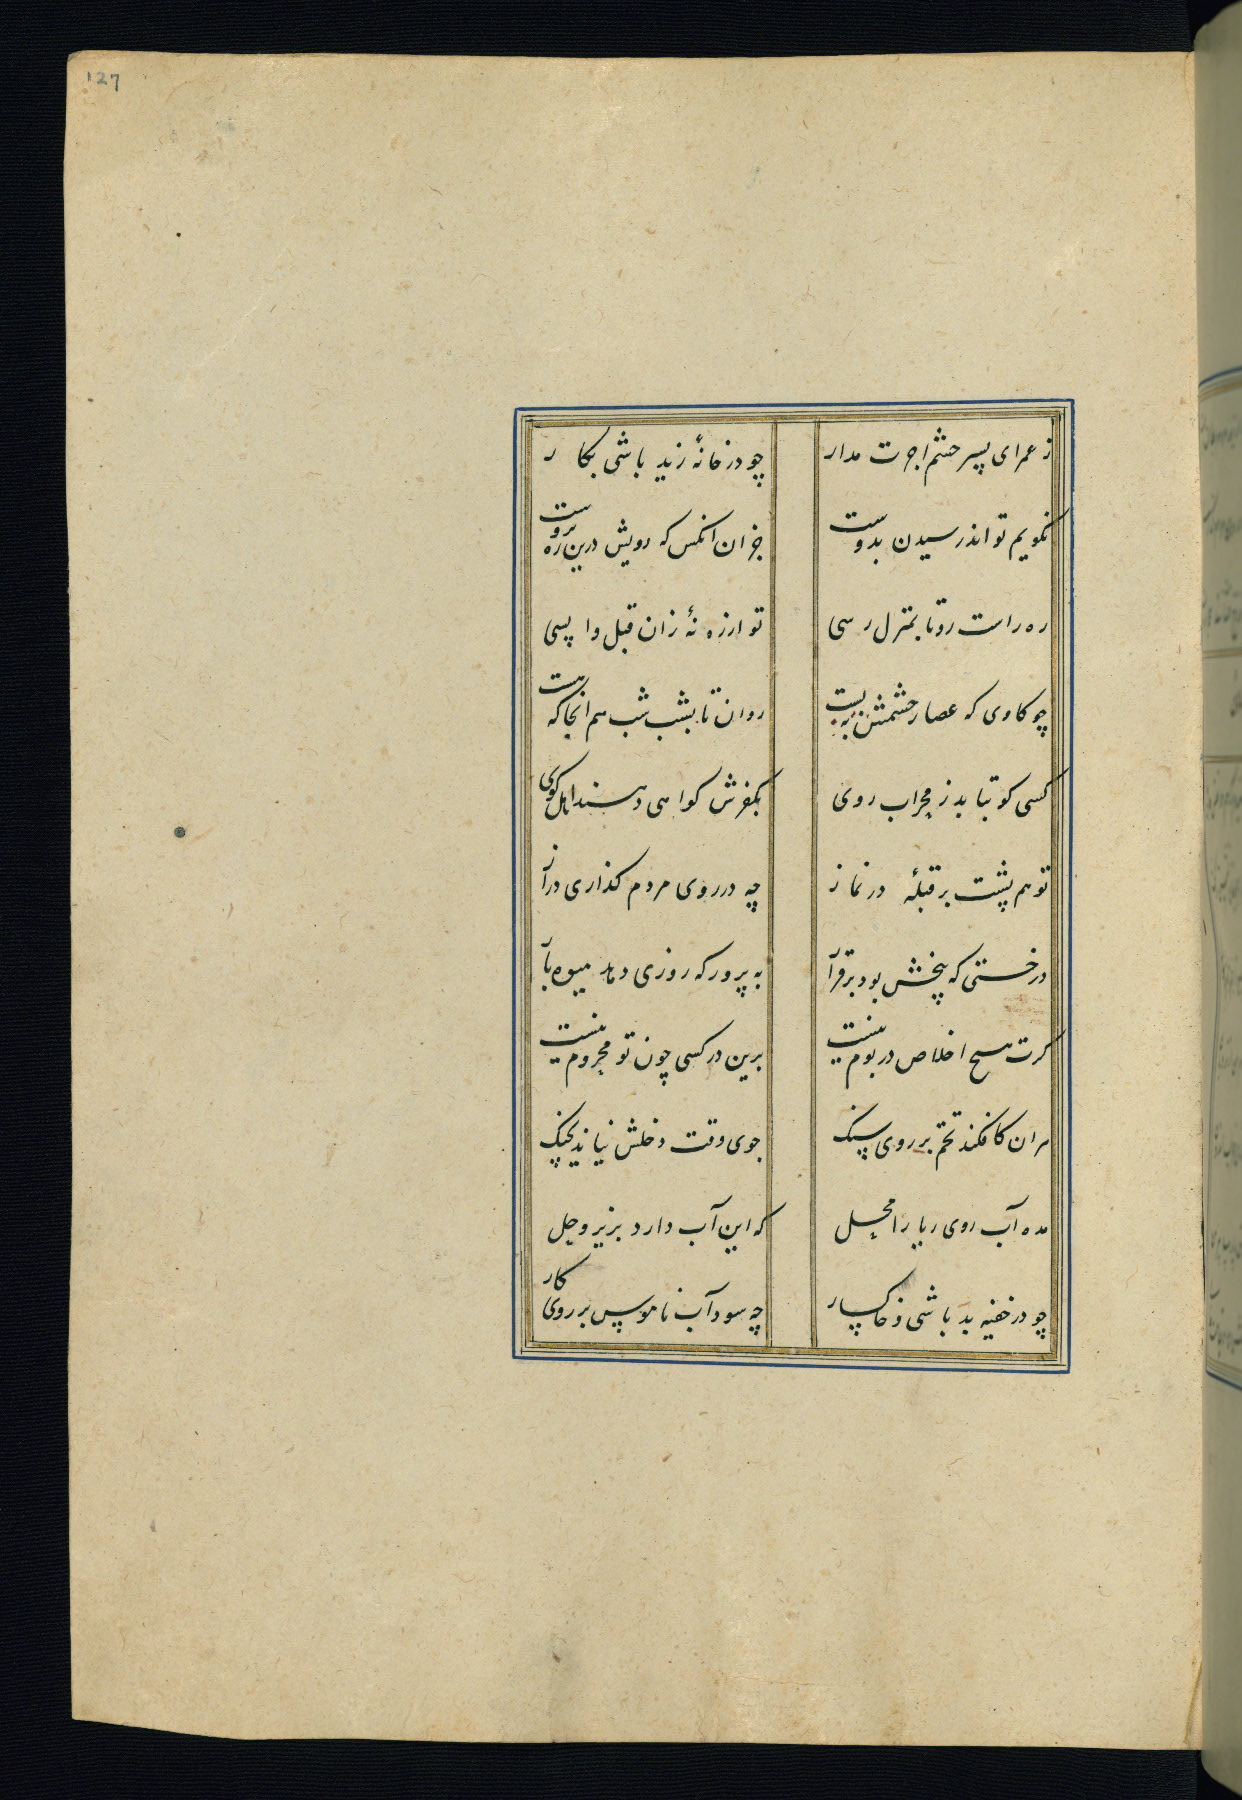 127
ز عمرای پسر چشم اجرت مدار چو در خانهٔ زید باشی بکار
نکویم تواند رسیدن بدوست جز ان انکس که رویش درین ره بروست
ره راست رو تا بمنزل رسی تو ارزه نهٔ زان قبل واپسی
چو کاوی که عصار چشمش ببست روان تا بشب شب هم انجا که هست
کسی کو بتابد ز محراب روی بکفرش کواهی دهند اهل کوی
تو هم پشت بر قبلهٔ در نماز چه در روی مردم کذاری دراز
درختی که بیخش بود برقرار به پرور که روزی دهد میوه بار
کرت هیچ اخلاص در بوم نیست برین در کسی چون تو محروم نیست
هر ان کافکند تخم بر روی سنک جوی وقت دخلش نیاید بچنک
مده آب روی ریا را محل که این آب دارد بزیر وحل
چو در خفیه بد باشی و خاکسار چه سود آب ناموس بر روی کار